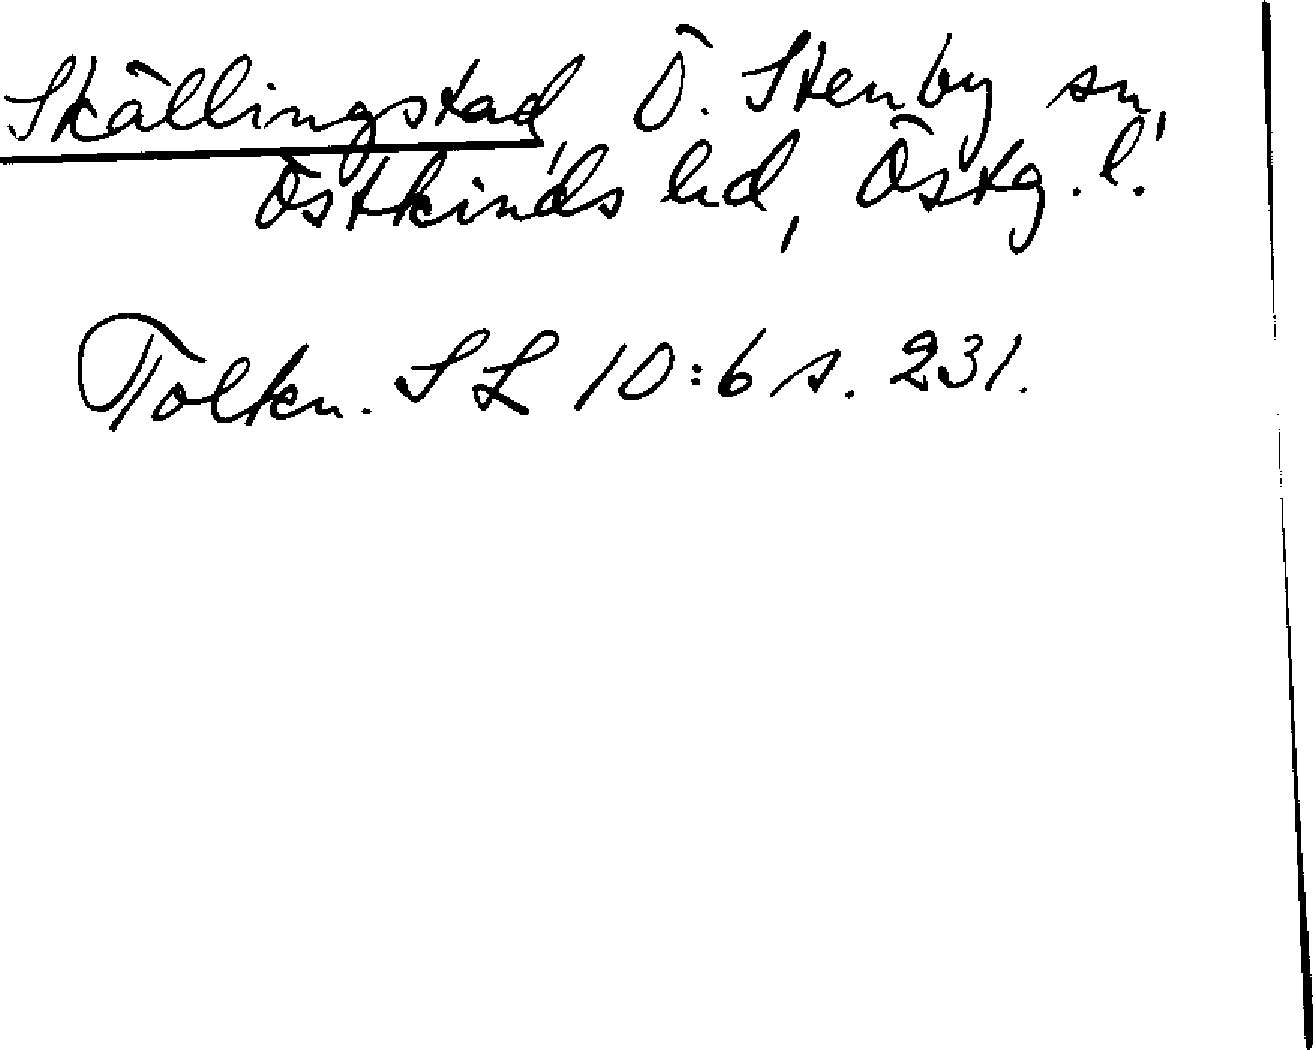 Skällingstad, Ö. Stenby sn,
Östkinds hd, Östg. l.
Tolkn. SL 10:6 s. 231.